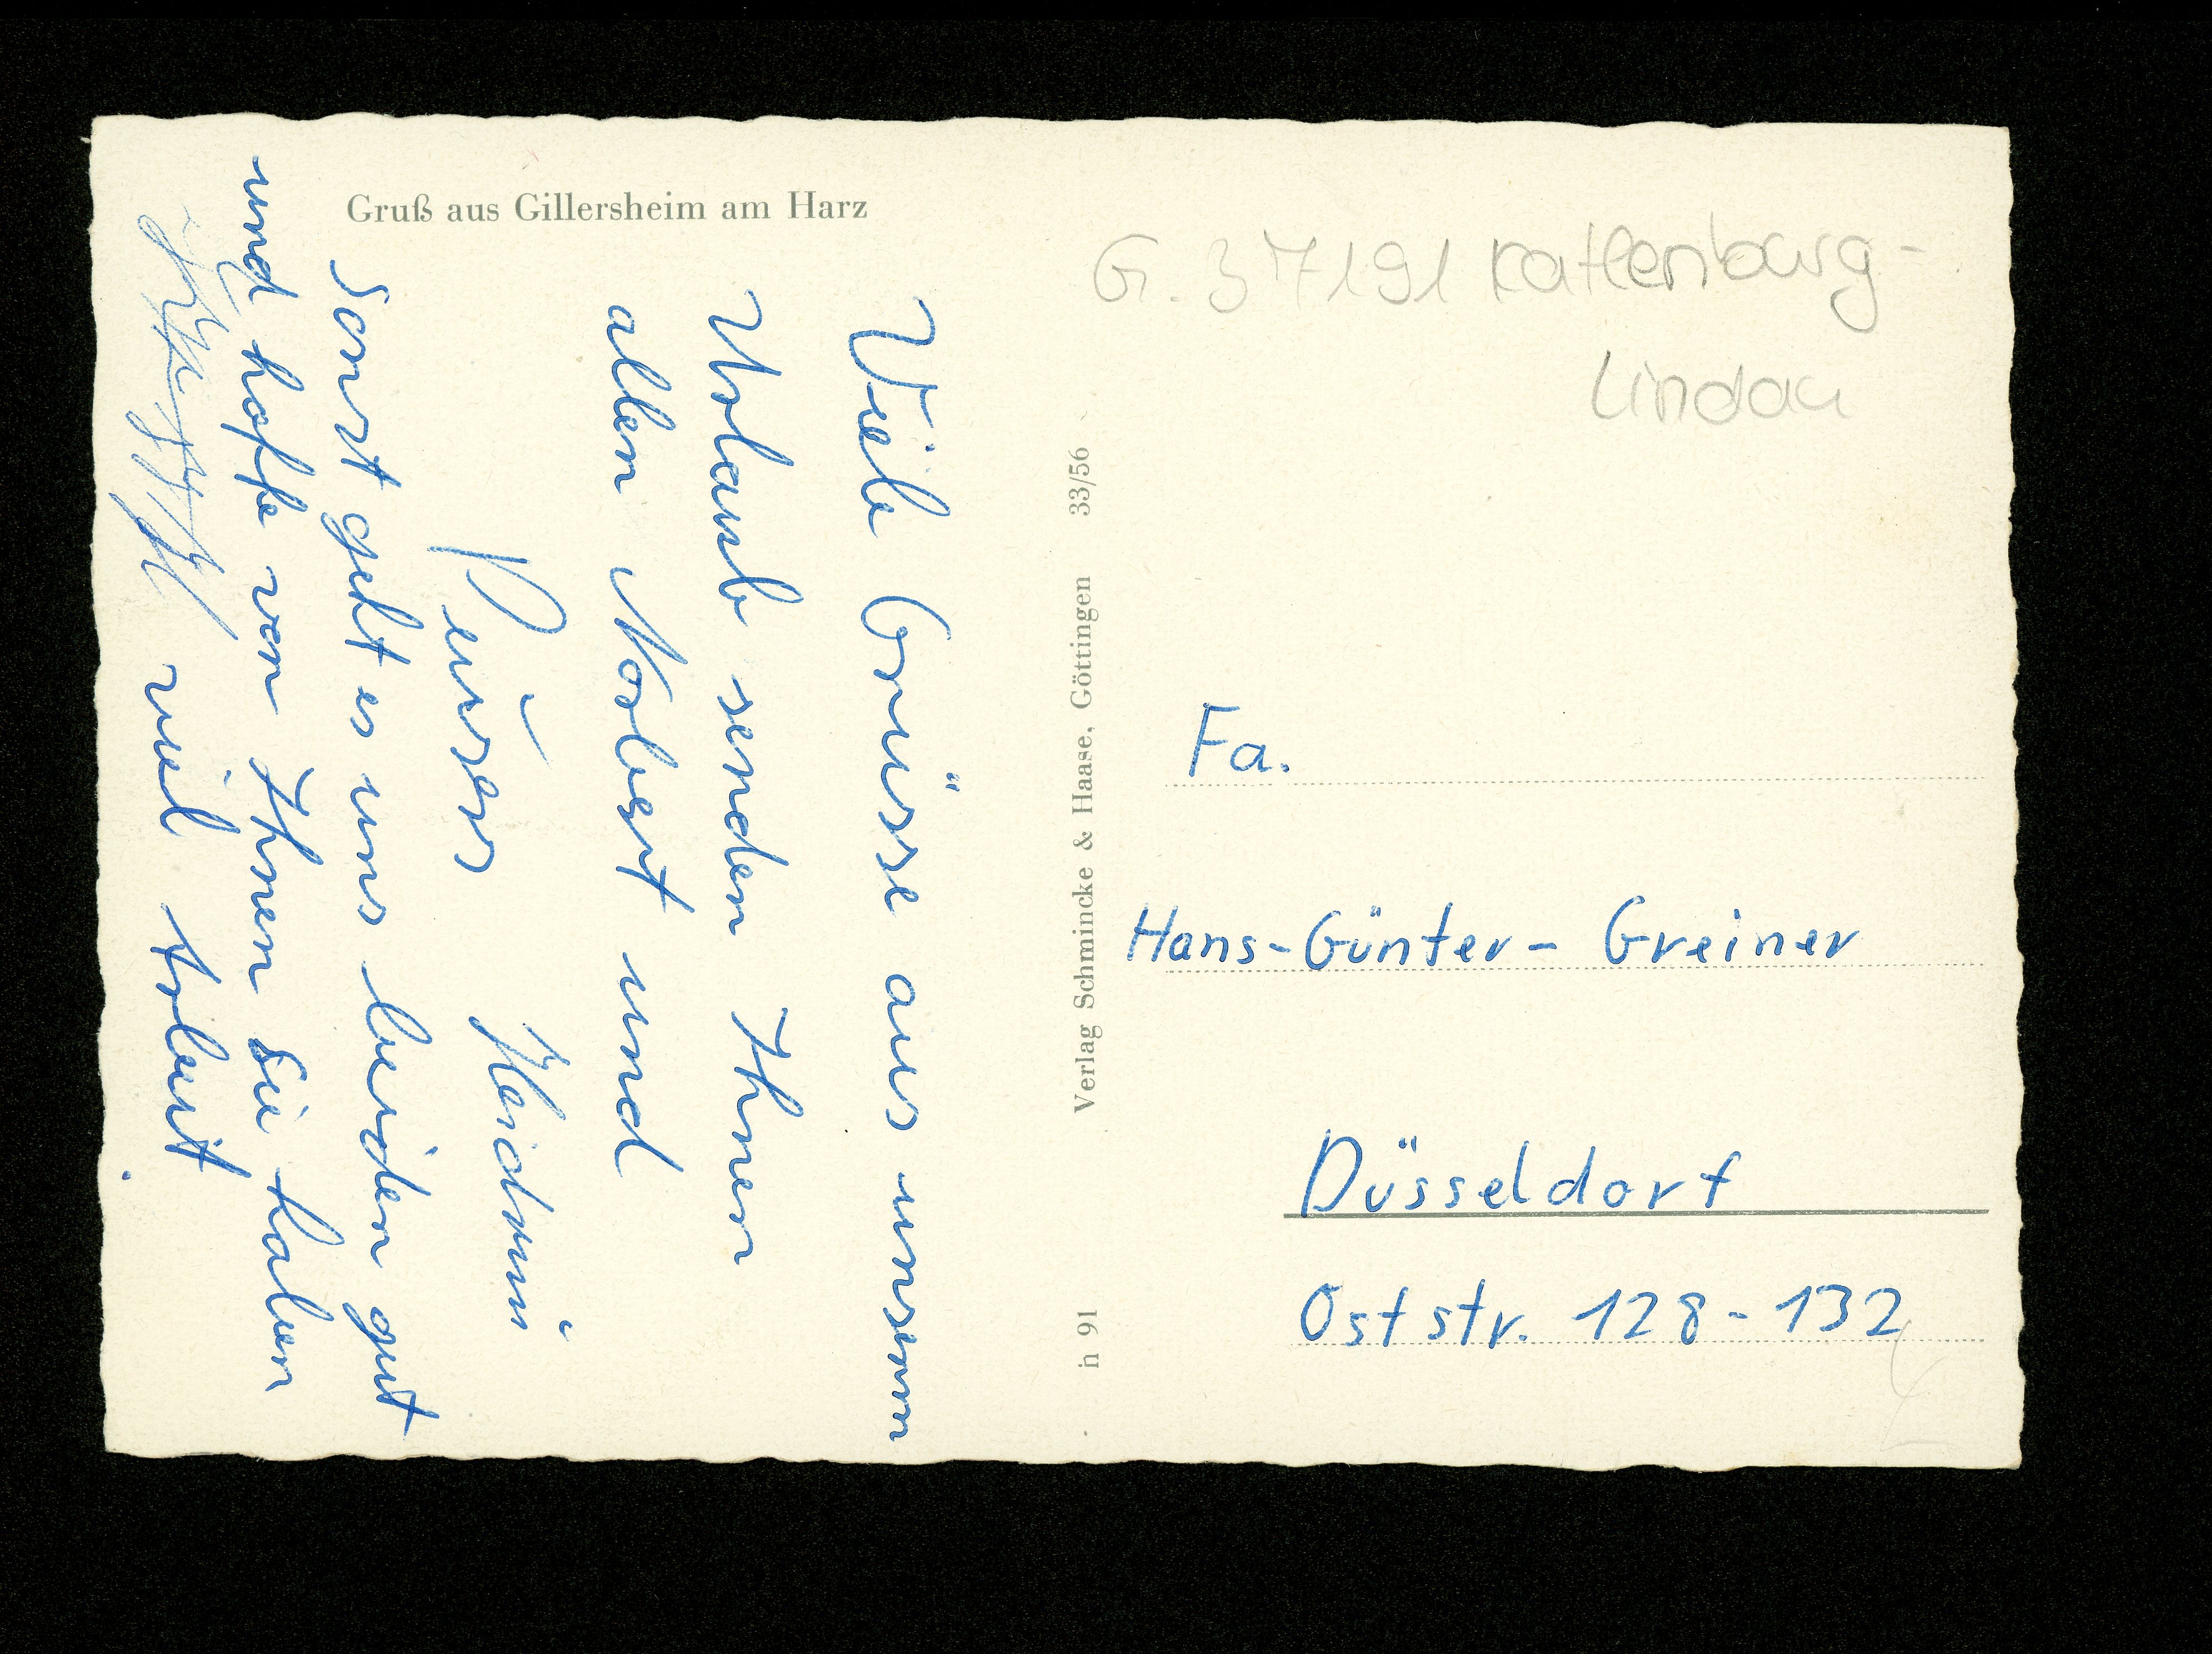 Gruß aus Gillersheim am Harz
Viele Grüsse aus unserm
Urlaub senden Ihnen
allen Norbert und
Heidruni
Sonst geht es uns beiden gut
und hoffe von Ihnen Sie haben
viel Arbeit.
Verlag Schmincke & Haase, Göttingen 33/56
h 91
G. 37191 Katlenburg-
Lindau
Fa.
Hans-Günter- Greiner
Düsseldorf
Oststr. 128-132